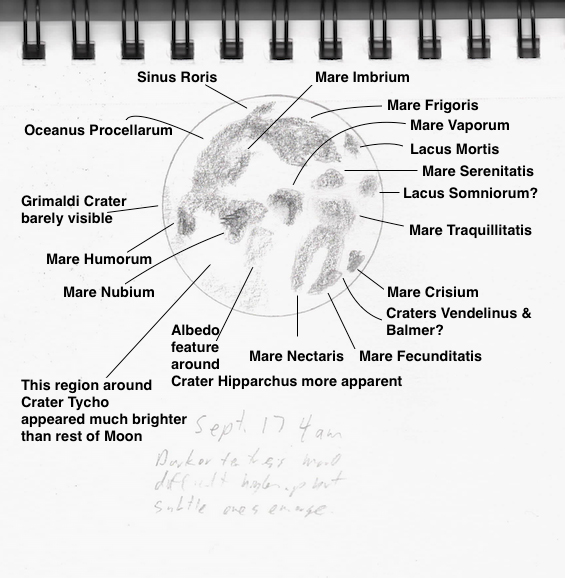 Sinus Roris
Mare Imbrium
Mare Frigoris
Oceanus Procellarum
Mare Vaporum
Lacus Mortis
Mare Serenitatis
Lacus Somniorum?
Grimaldi Crater
barely visible
Mare Traquillitatis
Mare Humorum
Mare Nubium
Mare Crisium
Craters Vendelinus &
Balmer?
Albedo
feature
around
Crater Hipparchus more apparent
Mare Nectaris
Mare Fecunditatis
This region around
Crater Tycho
appeared much brighter
than rest of Moon
Sept. 17 4am
Darker
difficult but
subtle ones emerge.